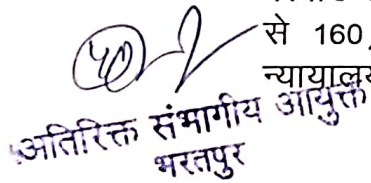 से 160,
न्यायालय
अतिरिक्त संभागीय आयुक्त
भरतपुर